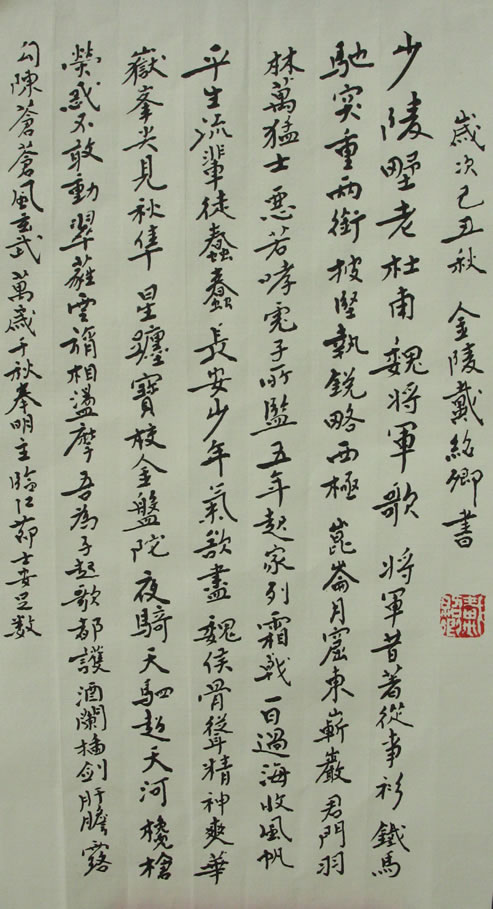 歲次己丑秋 金陵戴紹卿書
少陵野老杜甫魏將軍歌 將軍昔著從事衫 鐵馬
馳突重兩銜 披堅執銳略西極 崑崙月窟東嶄巖 君門羽
林萬猛士 惡若哮虎子所監 五年起家列霜戟 一日過海收風帆
平生流輩徒蠢蠢 長安少年氣欲盡 魏侯骨聳精神爽 華
嶽峯尖見秋隼 星躔寶校金盤陀 夜騎天駟超天河 欃槍
熒惑不敢動 翠蕤雲旓相盪摩 吾為子起歌都護 酒闌插劍肝膽露
勾陳蒼蒼風玄武 萬歲千秋奉明主 臨江節士安足數